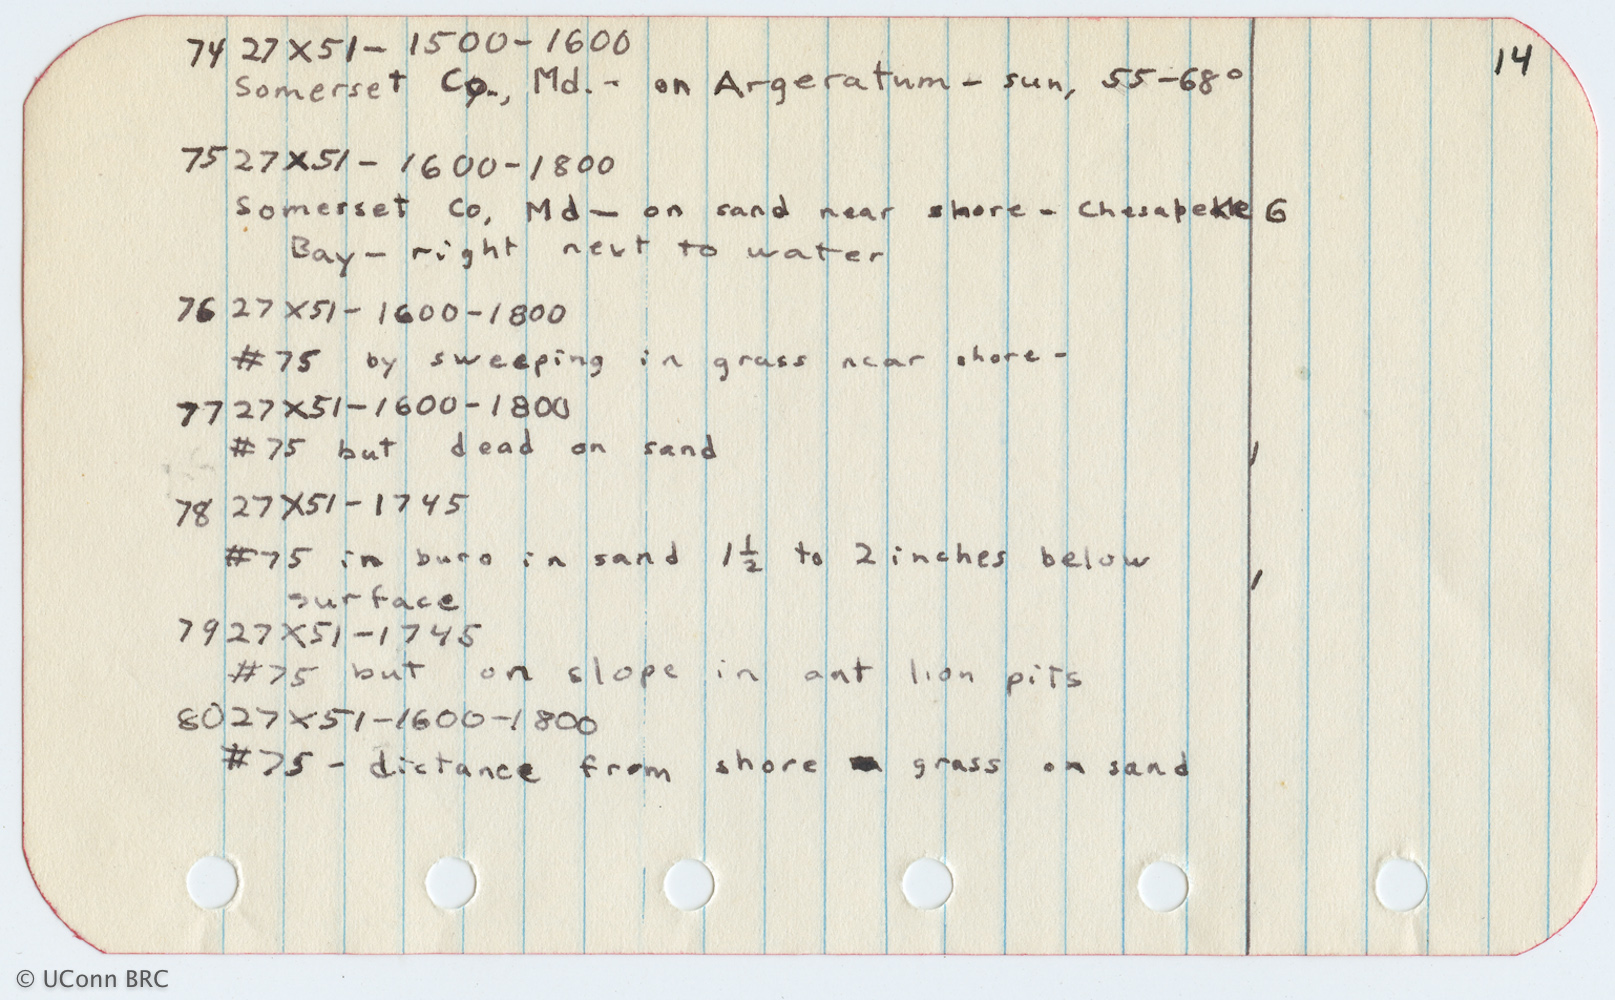 14
74 27X51- 1500-1600
Somerset Co., Md. - on Argeratum - sun, 55-68°
75 27X51- 1600-1800
Somerset Co, Md - on sand near shore - Chesapeke 6
Bay - right next to water
76 27X51- 1600-1800
#75 by sweeping in grass near shore -
77 27X51-1600-1800
#75 but dead on sand
78 27X51-1745
#75 in buro in sand 1½ to 2 inches below
surface
79 27X51-1745
#75 but on slope in ant lion pits
80 27X51-1600-1800
#75 - distance from shore grass on sand
© UConn BRC